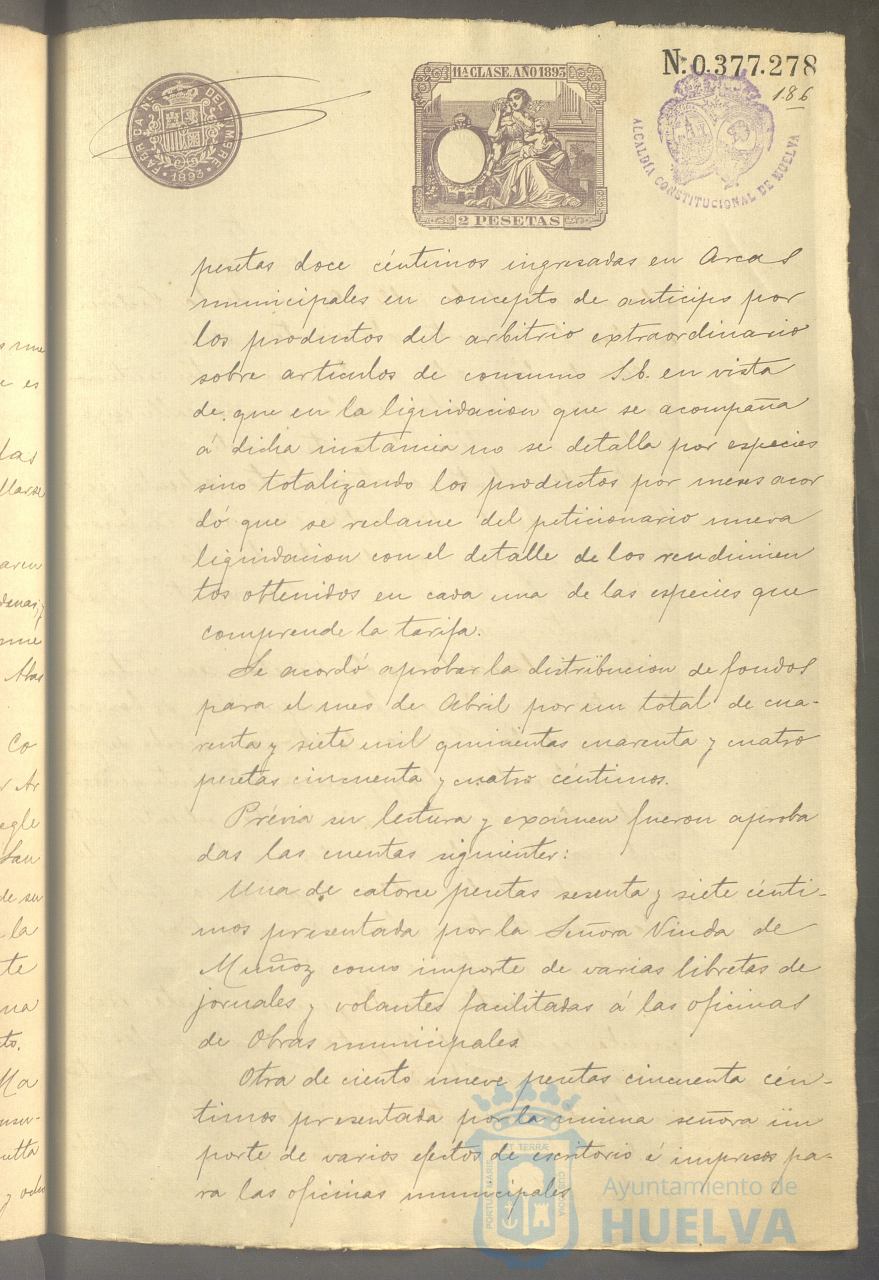 N.º 0.377.278
186
11ª CLASE. AÑO 1893
2 PESETAS
FABRICA NAL DEL TIMBRE
1893
ALCALDÍA CONSTITUCIONAL DE HUELVA
pesetas doce céntimos ingresadas en Arcas
municipales en concepto de anticipo por
los productos del arbitrio extraordinario
sobre articulos de consumo S.E. en vista
de que en la liquidacion que se acompaña
á dicha instancia no se detalla por especies
sino totalizando los productos por meses acor
dó que se reclame del peticionario nueva
liquidacion con el detalle de los rendimien
tos obtenidos en cada una de las especies que
comprende la tarifa.
Se acordó aprobar la distribucion de fondos
para el mes de Abril por un total de cua-
renta y siete mil quinientas cuarenta y cuatro
pesetas cincuenta y cuatro céntimos.
Prévia su lectura y exámen fueron aproba
das las cuentas siguientes:
Una de catorce pesetas sesenta y siete cénti-
mos presentada por la Señora Viuda de
Muñoz como importe de varias libretas de
jornales y volantes facilitadas á las oficinas
de Obras municipales.
Otra de ciento nueve pesetas cincuenta cén-
timos presentada por la misma señora im
porte de varios efectos de escritorio é impresos pa-
ra las oficinas municipales
PORTUS MARIS ET TERRÆ CUSTODIA
Ayuntamiento de
HUELVA